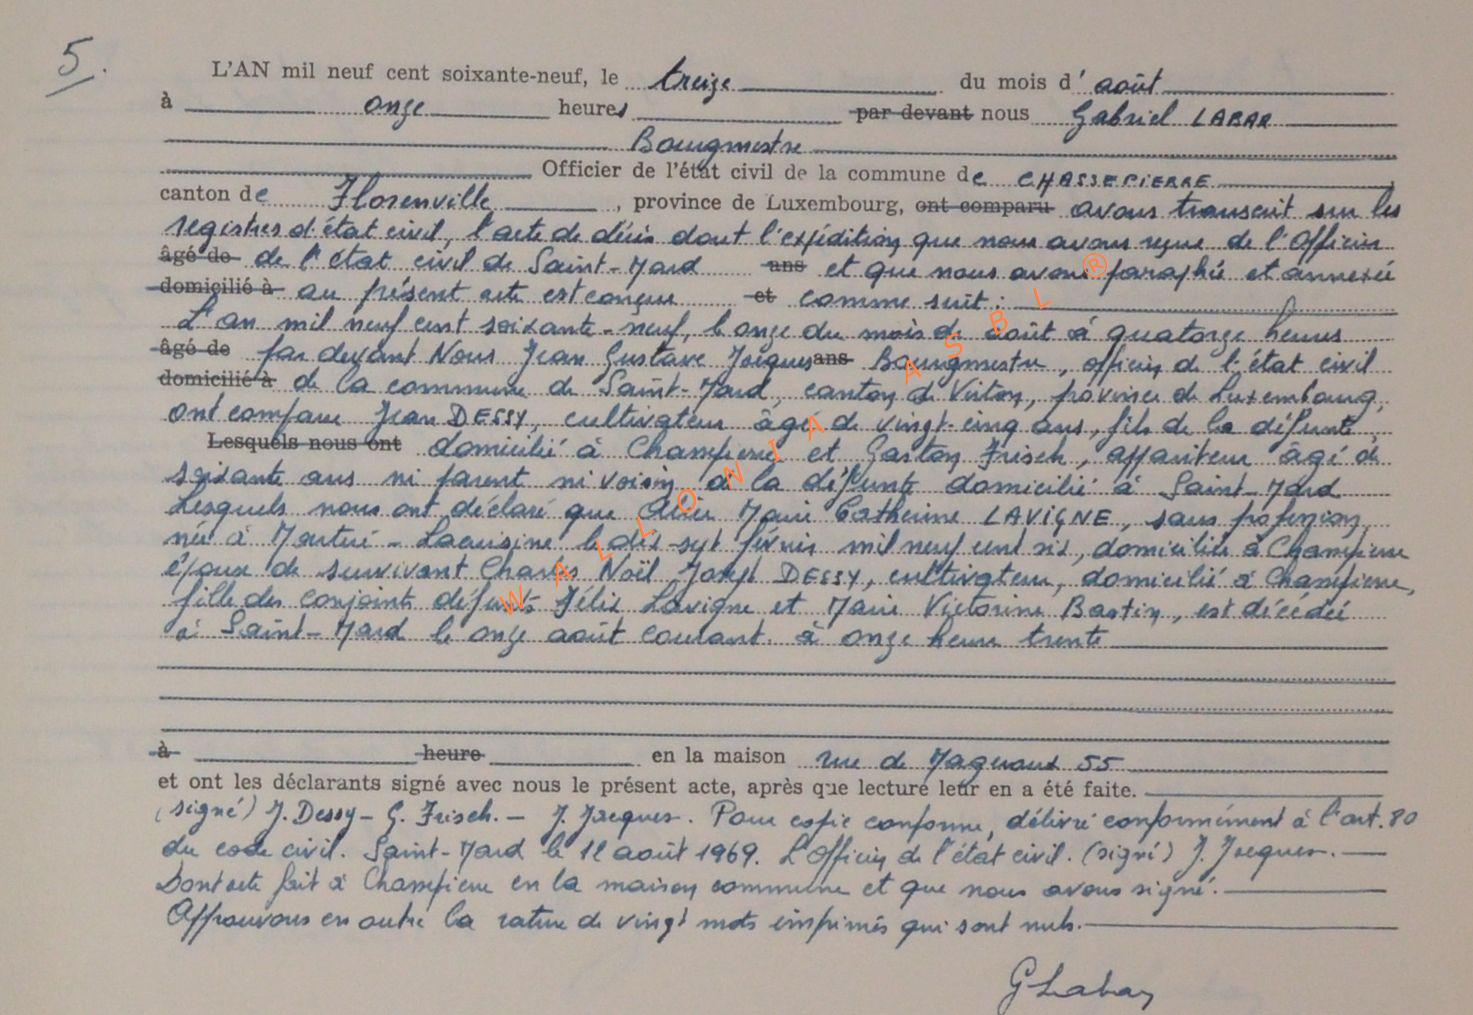 5.
L'AN mil neuf cent soixante-neuf, le treize du mois d' août
à onze heures par devant nous Gabriel LABAR
Bourgmestre
Officier de l'état civil de la commune de CHASSEPIERRE
canton de Florenville , province de Luxembourg, ont comparu avons transcrit sur les
registres d'état civil, l'acte de décès dont l'expédition que nous avons reçue de l'Officier
âgé de de l'état civil de Saint-Mard ans et que nous avons paraphée et annexée
domicilié à au présent acte est conçue et comme suit :
L'an mil neuf cent soixante-neuf, le onze du mois de août à quatorze heures
âgé de par devant Nous Jean Gustave Jacques ans Bourgmestre, officier de l'état civil
domicilié à de la commune de Saint-Mard, canton de Virton, province de Luxembourg,
ont comparu Jean DESSY, cultivateur âgé de vingt-cinq ans, fils de la défunte,
Lesquels nous ont domicilié à Chassepierre et Gaston Frisch, appariteur âgé de
soixante ans ni parent ni voisin de la défunte domicilié à Saint-Mard
Lesquels nous ont déclaré que Marie Catherine LAVIGNE, sans profession,
née à Lacuisine le dix-sept février mil neuf cent six, domiciliée à Chassepierre
épouse de survivant Charles Noël Joseph DESSY, cultivateur, domicilié à Chassepierre,
fille des conjoints défunts Félix Lavigne et Marie Victorine Bastin, est décédée
à Saint-Mard le onze août courant à onze heure trente
à heure en la maison rue de 55
et ont les déclarants signé avec nous le présent acte, après que lecture leur en a été faite.
(signé) J. Dessy - G. Frisch. - J. Jacques. Pour copie conforme, délivré conformément à l'art. 80
du code civil. Saint-Mard le 12 août 1969. L'Officier de l'état civil. (signé) J. Jacques.
Dont acte fait à Chassepierre en la maison commune et que nous avons signé.
Approuvons en outre la rature de vingt mots imprimés qui sont nuls.
GLabar
WALLONIA ASBL ®